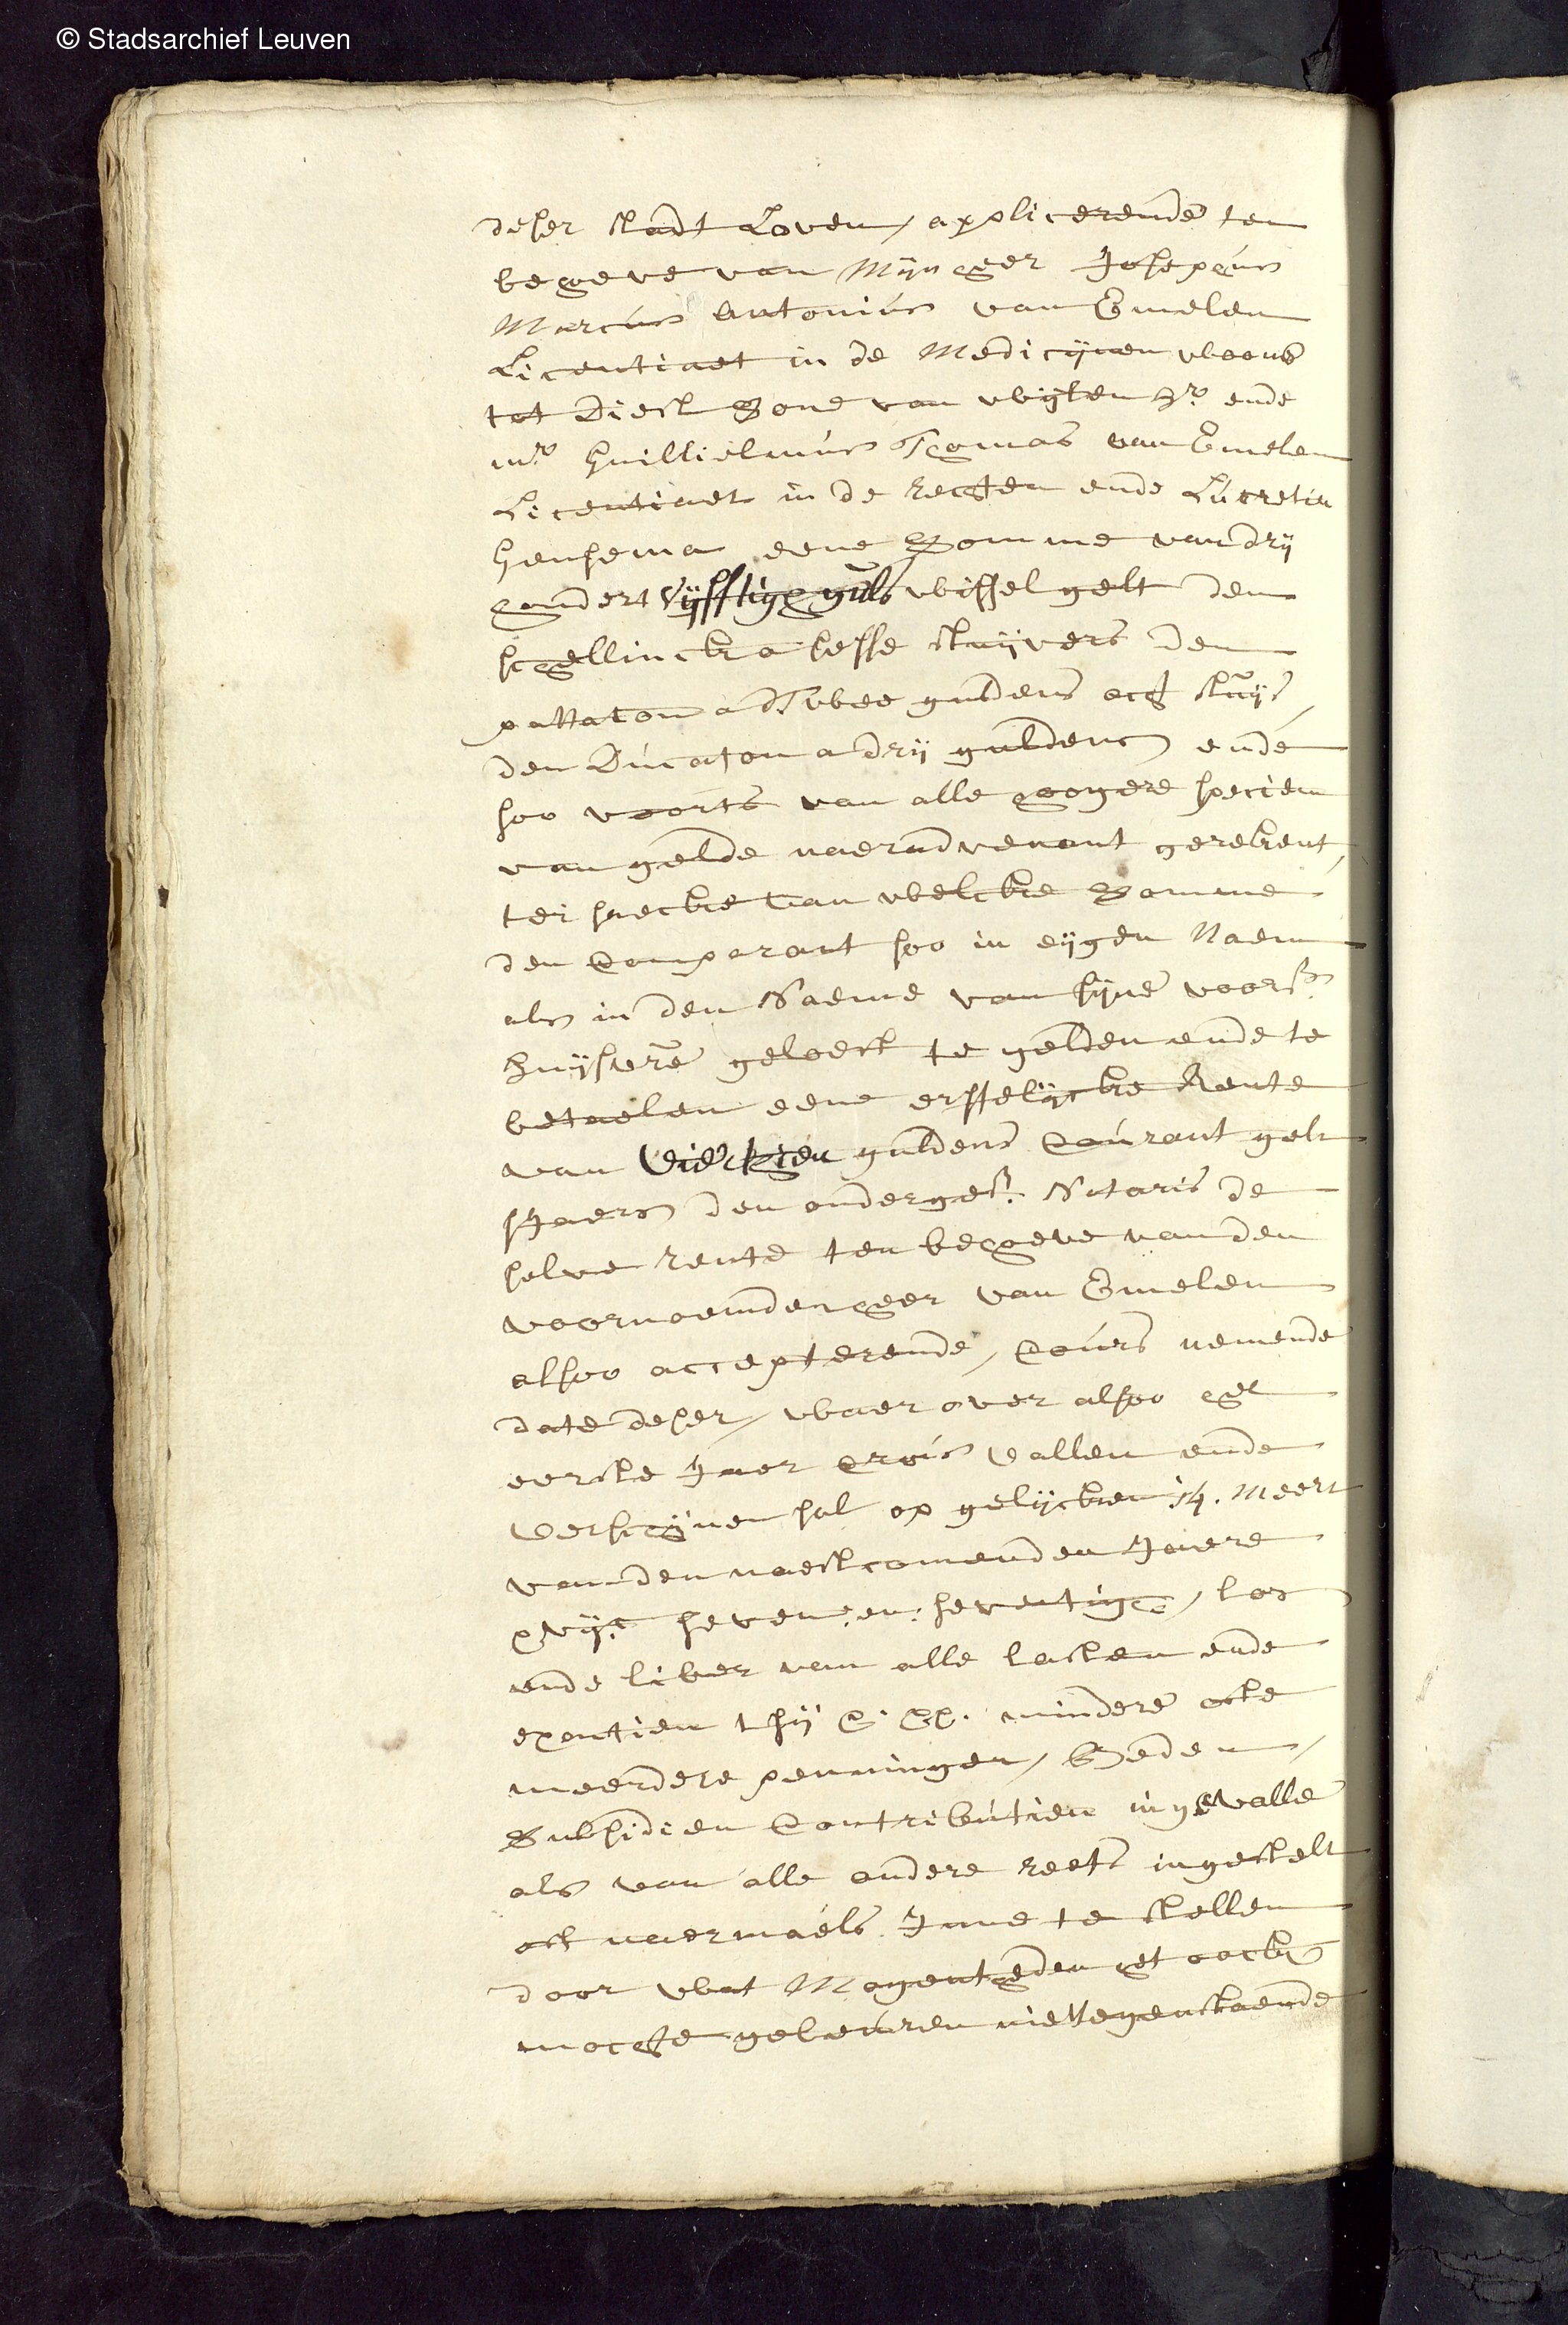 © Stadsarchief Leuven
deser stadt Loven, applicerende ten
behoeve van Mijnheer Josephus
Marcus Antonius van Emelen
Licentiaet in de Medicijnen woont
tot Diest Sone van wijlen Hr. ende
mr. Guillielmus Thomas van Emelen
Licentiaet in de rechten ende Lucretia
eene Somme van drij
hondert vijfftigh guls wissel gelt den
schellinck a sesse stuijvers den
pattacon a Twee guldens acht stuijs
den Ducaton a drij guldens ende
soo voorts van alle hoogere specien
van gelde naer advenant gerekent,
ter saecke van welcke Somme
den Comparant soo in eijgen Naem
als in den Naeme van sijne voors.
huijsvre geloeft te gelden ende te
betaelen eene erffelijcke Rente
van Vierthien guldens Courant gelt
sJaers den onderges. Notaris de
selve rente ten behoeve van den
voornoemden heer van Emelen
alsoo accepterende, Cours nemende
date deser, waer over alsoo het
eerste Jaer Crois vallen ende
Verschijnen sal op gelijcken 14. Meert
van den naestcomenden Jaere
xvijc seven en seventigh, los
ende liber van alle lasten ende
exactien tsij C. CC. mindere ofte
meerdere penningen, Beden,
Subsidien Contributien ingevalle
als van alle andere reets ingestelt
oft naermaels Inne te stellen
door wat Magentheden het oock
mochte gebeuren niettegenstaende